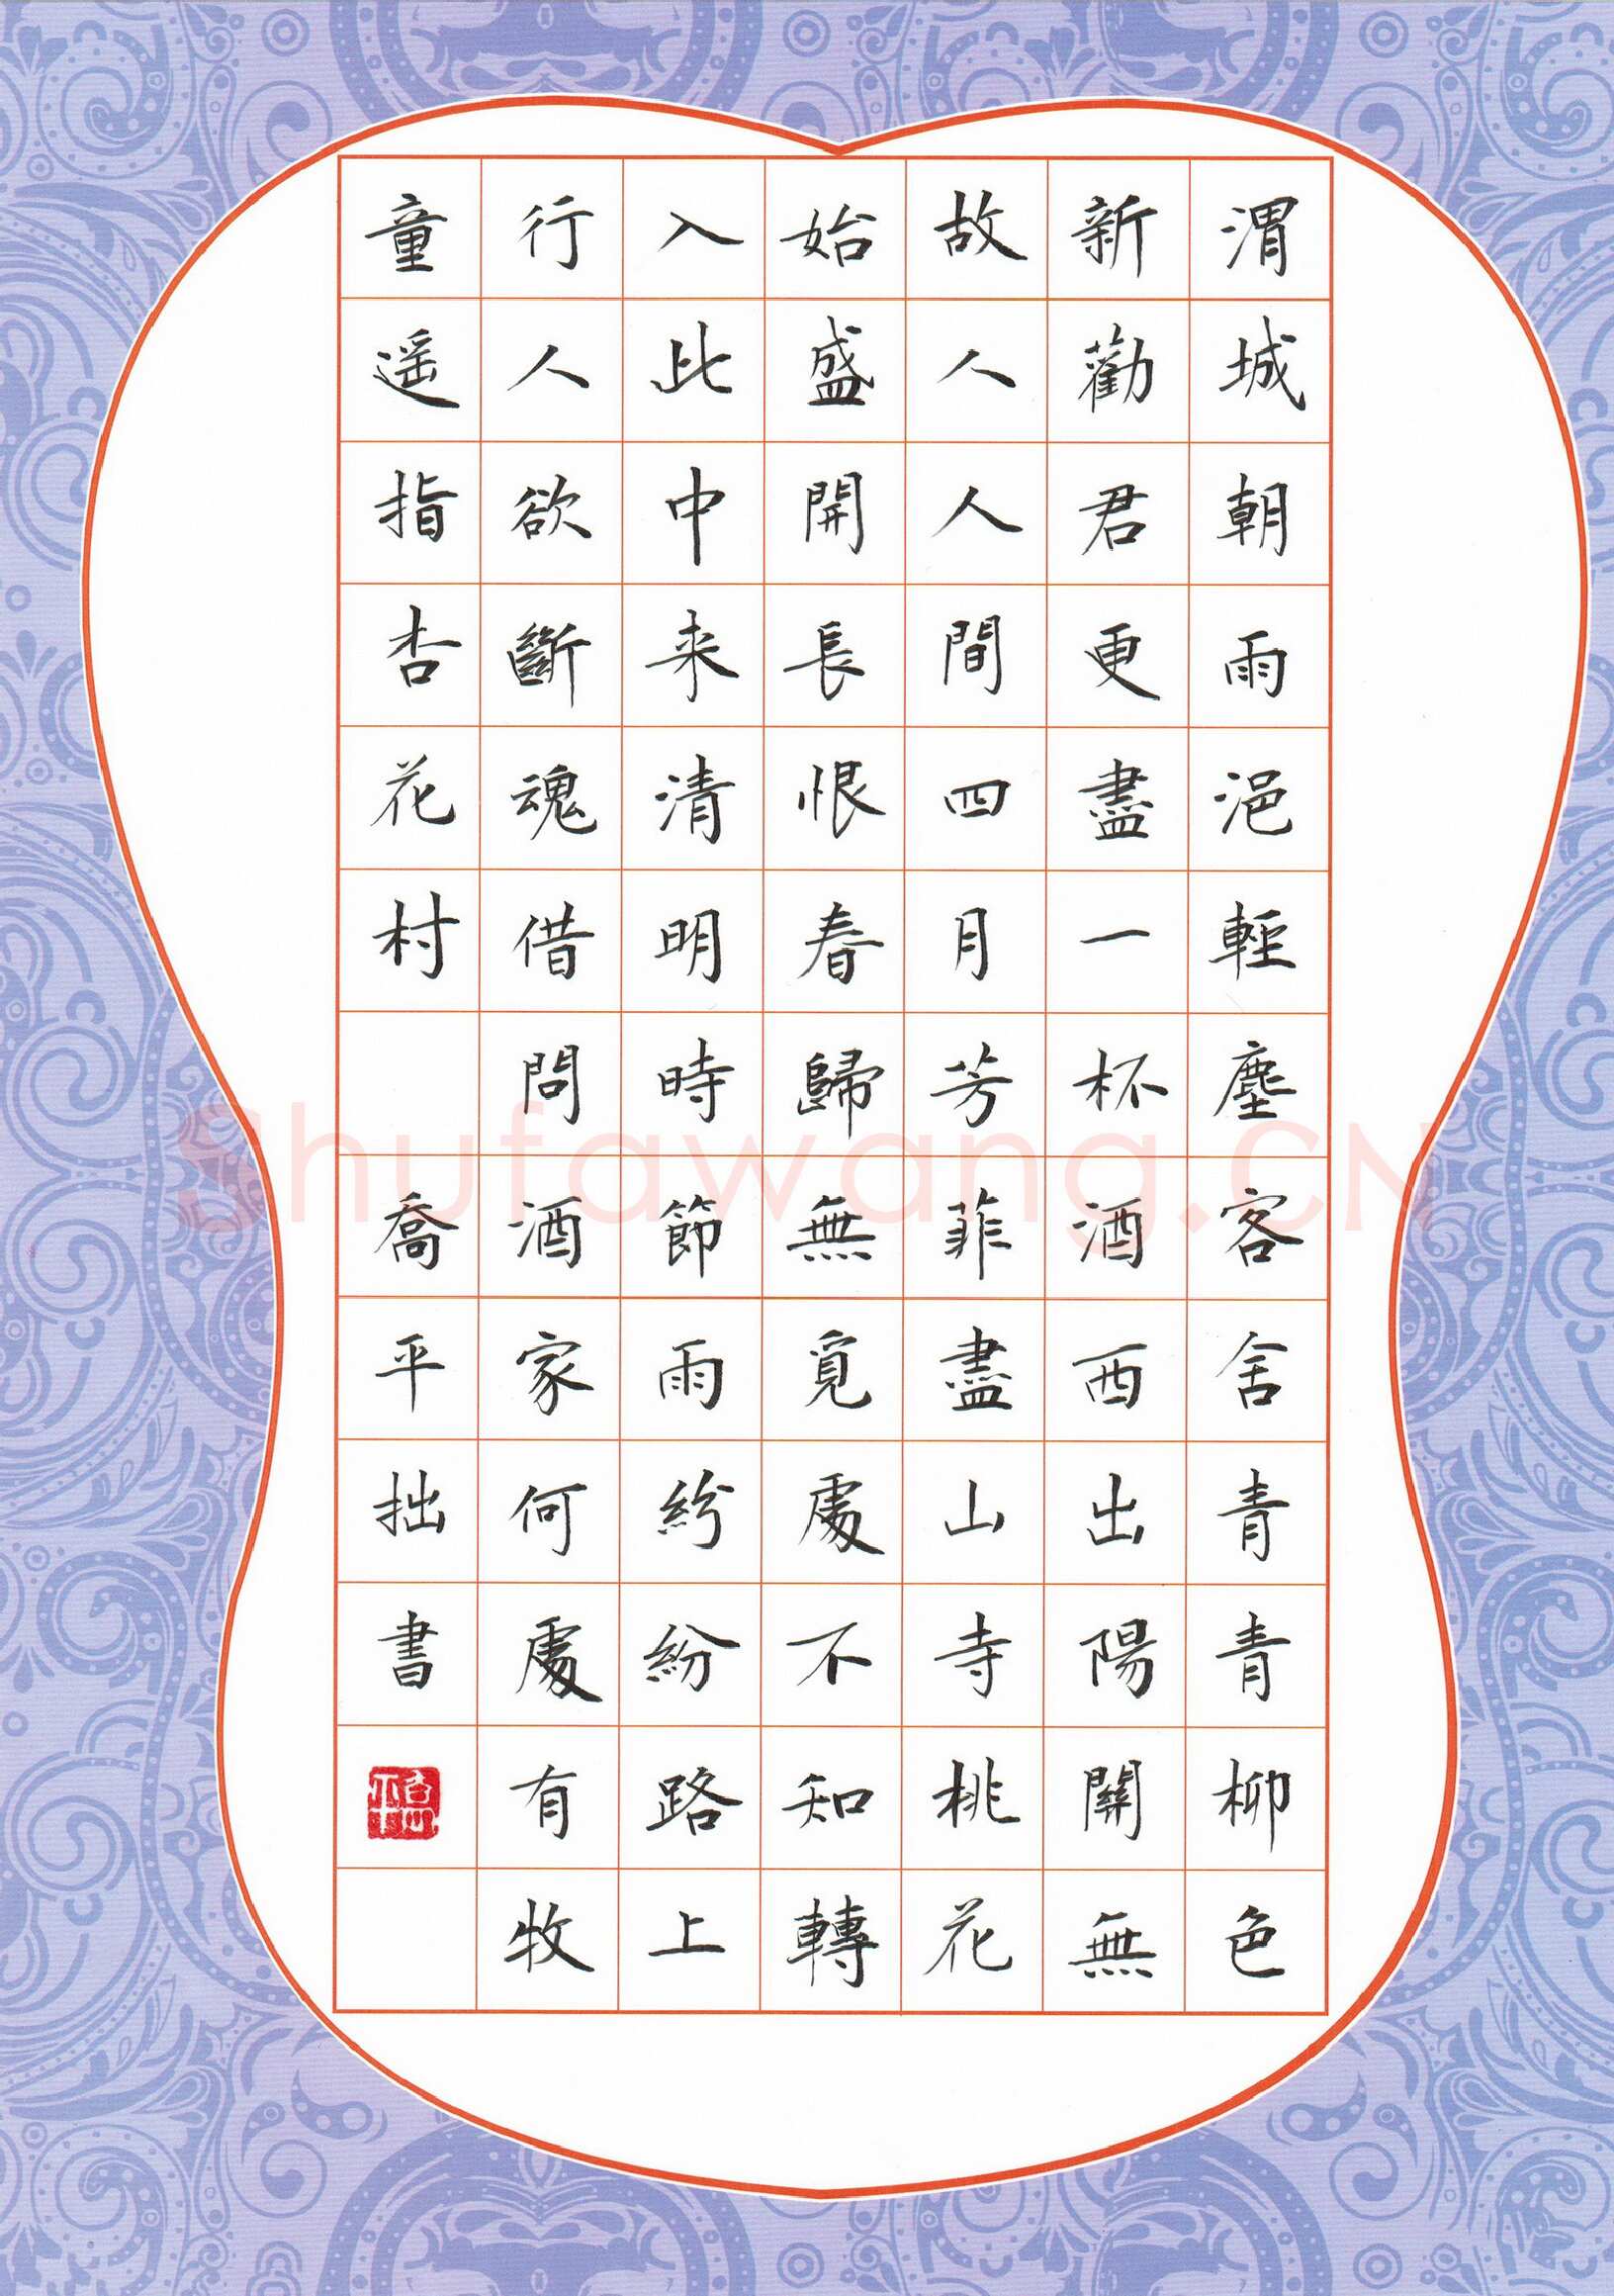 渭城朝雨浥輕塵客舍青青柳色
新勸君更盡一杯酒西出陽關無
故人人間四月芳菲盡山寺桃花
始盛開長恨春歸無覓處不知轉
入此中来清明時節雨紛紛路上
行人欲斷魂借問酒家何處有牧
童遥指杏花村 喬平拙書
Shufawang.CN